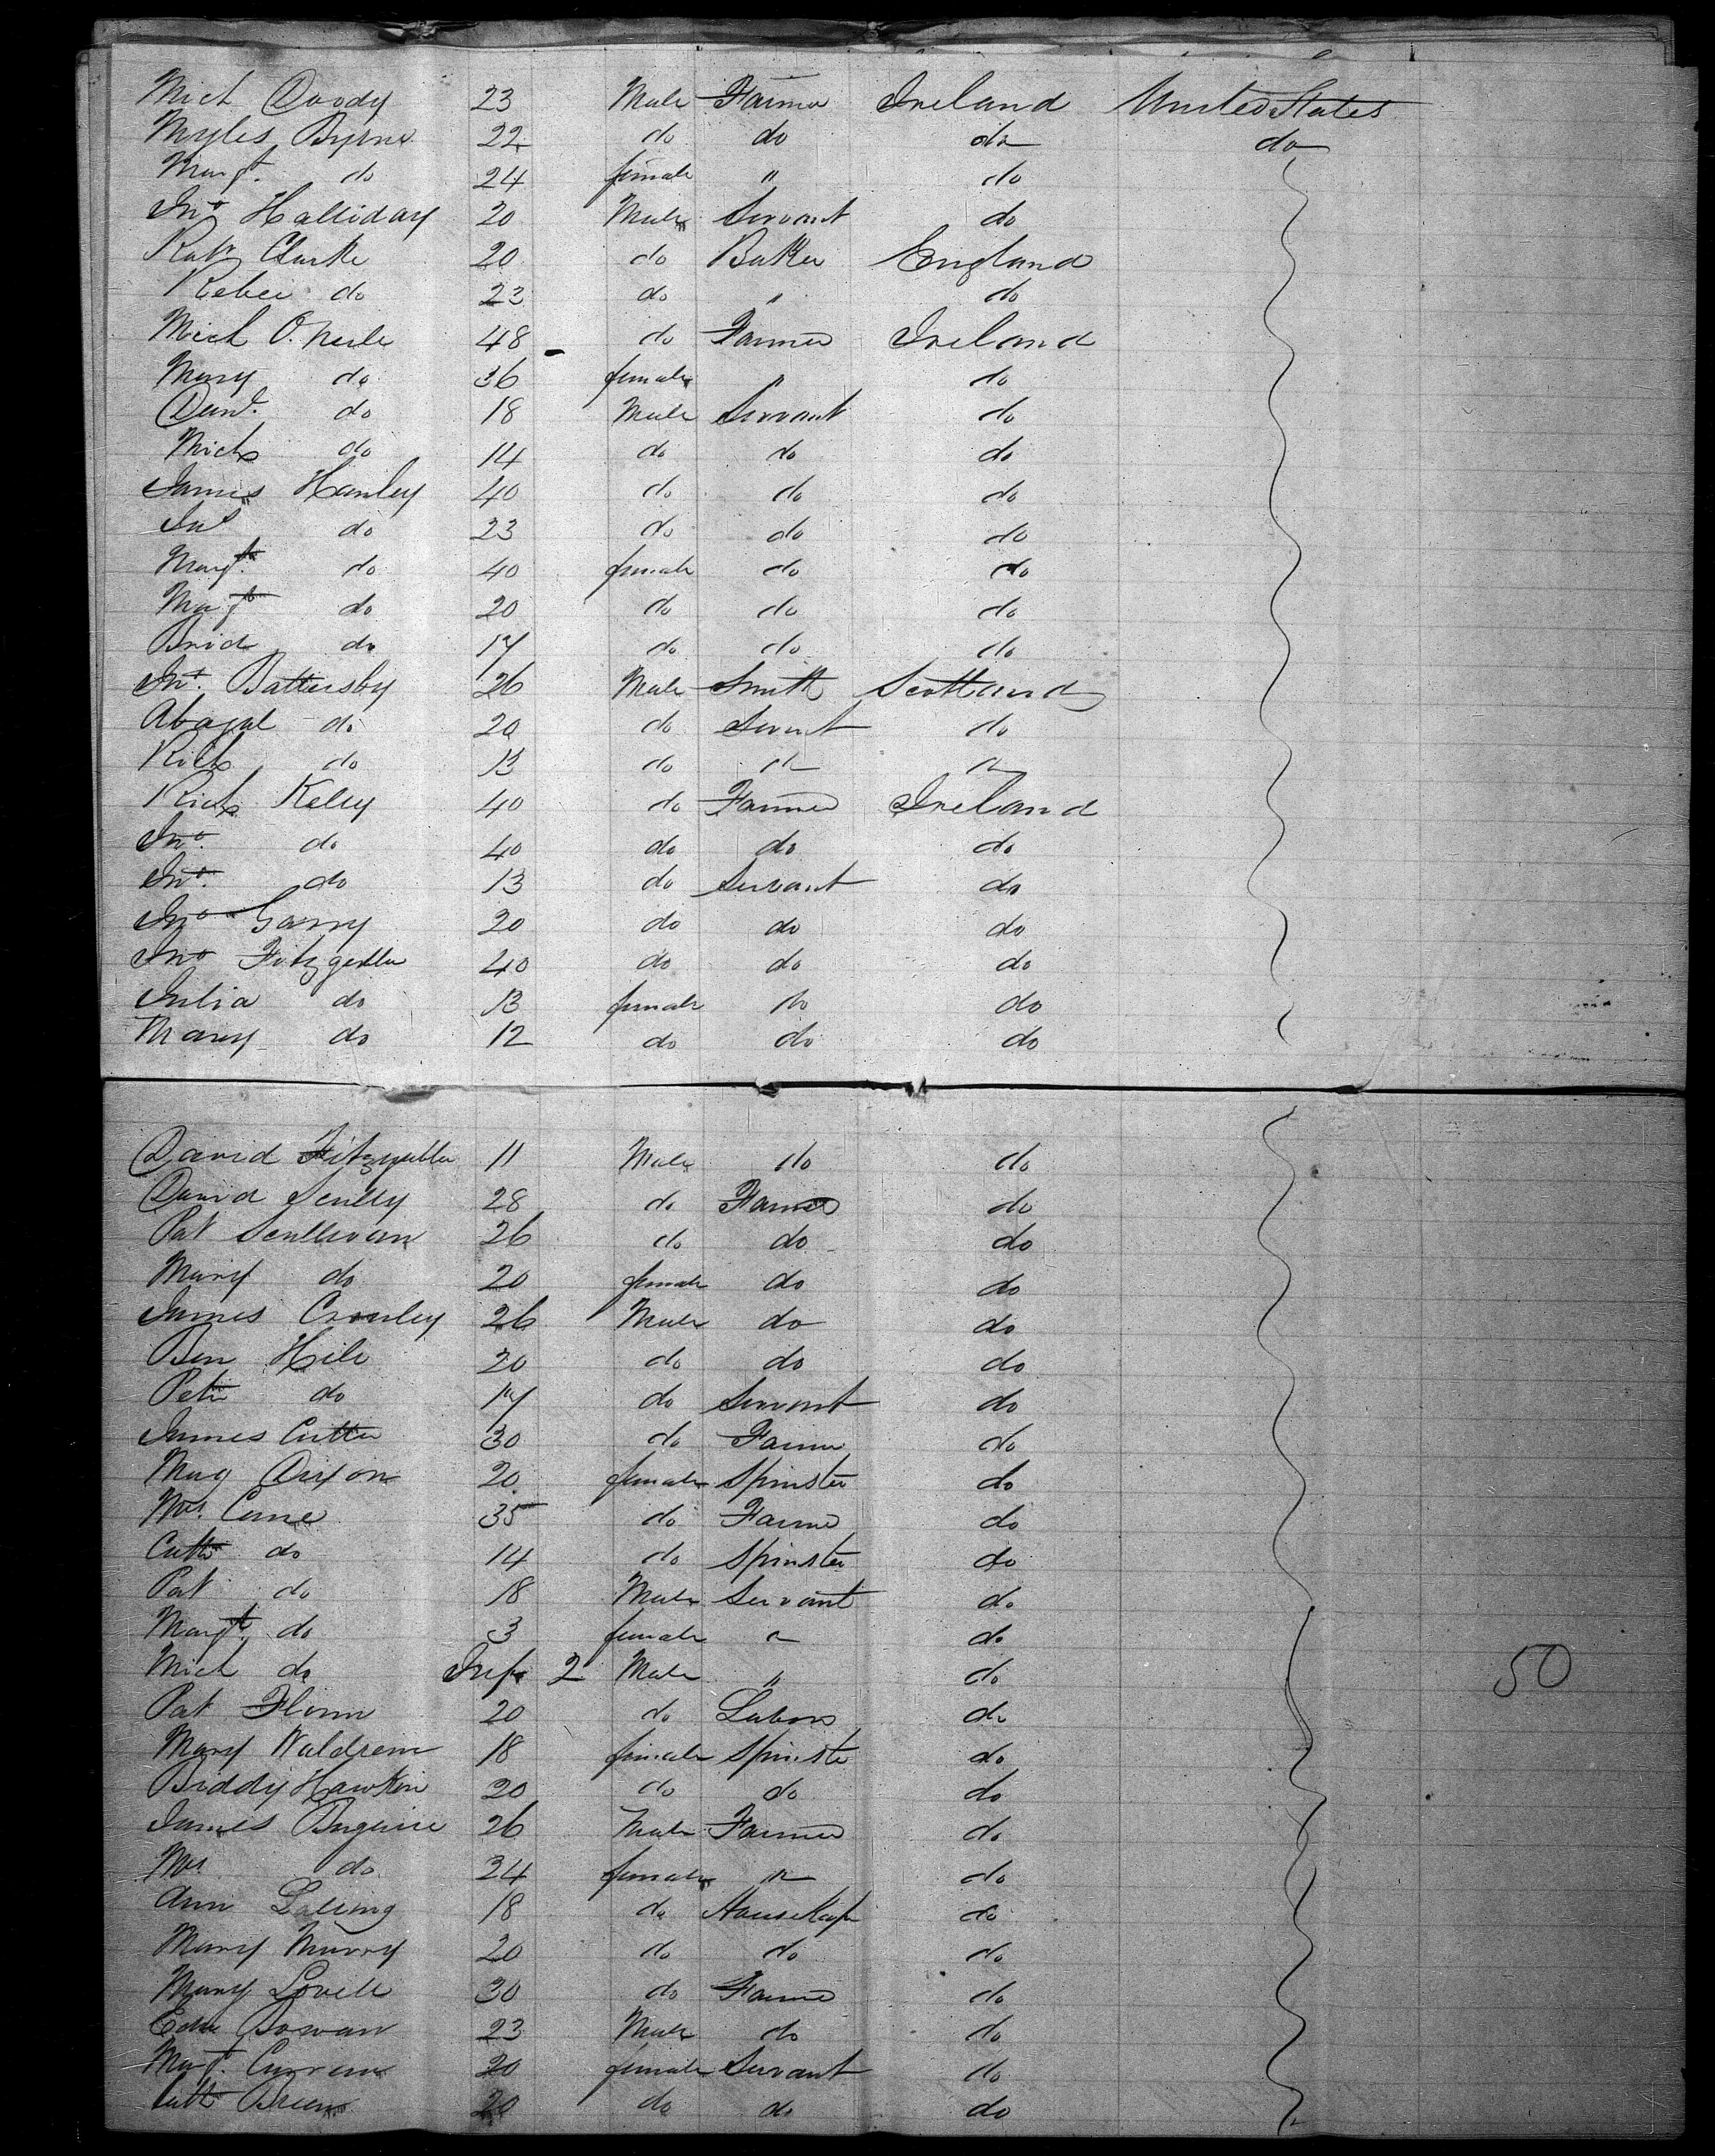 Mich Doody 23 Male Farmer Ireland United States
Myles Byrne 22 do do do do
Margt. do 24 female " do
Jno Halliday 20 Male Servant do
Robt Clarke 20 do Baker England
Rebec do 23 do " do
Mich O. Neile 48 do Farmer Ireland
Mary do 36 female " do
Danl. do 18 Male Servant do
Mich do 14 do do do
James Hanley 40 do do do
Jno do 23 do do do
Margt. do 40 female do do
Margt do 20 do do do
Brid do 17 do do do
Jno. Battersby 26 Male Smith Scotland
Abagal do 20 do Servnt do
Rich do 13 do do do
Rich Kelly 40 do Farmer Ireland
Jno. do 40 do do do
Jno. do 13 do Servant do
Jno Garry 20 do do do
Jno 40 do do do
Julia do 13 female do do
Mary do 12 do do do
David 11 Male do do
David Scully 28 do Farmer do
Pat Scullivan 26 do do do
Mary do 20 female do do
James Cronley 26 Male do do
Ben Hile 20 do do do
Peter do 17 do Servant do
James Cutter 30 do Farmer do
Mag Dixon 20 female Spinster do
Mrs. Cane 35 do Farmer do
Cath do 14 do Spinster do
Pat do 18 Male Servant do
Margt. do 3 female " do
Mich do Inft 2 Male " do 50
Pat Flinn 20 do Labors do
Mary Waldren 18 female Spinster do
Biddy Hawkin 20 do do do
James 26 Male Farmer do
Mrs do 24 female " do
Ann 18 do Housekeep do
Mary Murry 20 do do do
Mary Lovell 30 do Farmer do
Edw Bowan 23 Male do do
Margt. Curren 20 female Servant do
Cath Breen 20 do do do